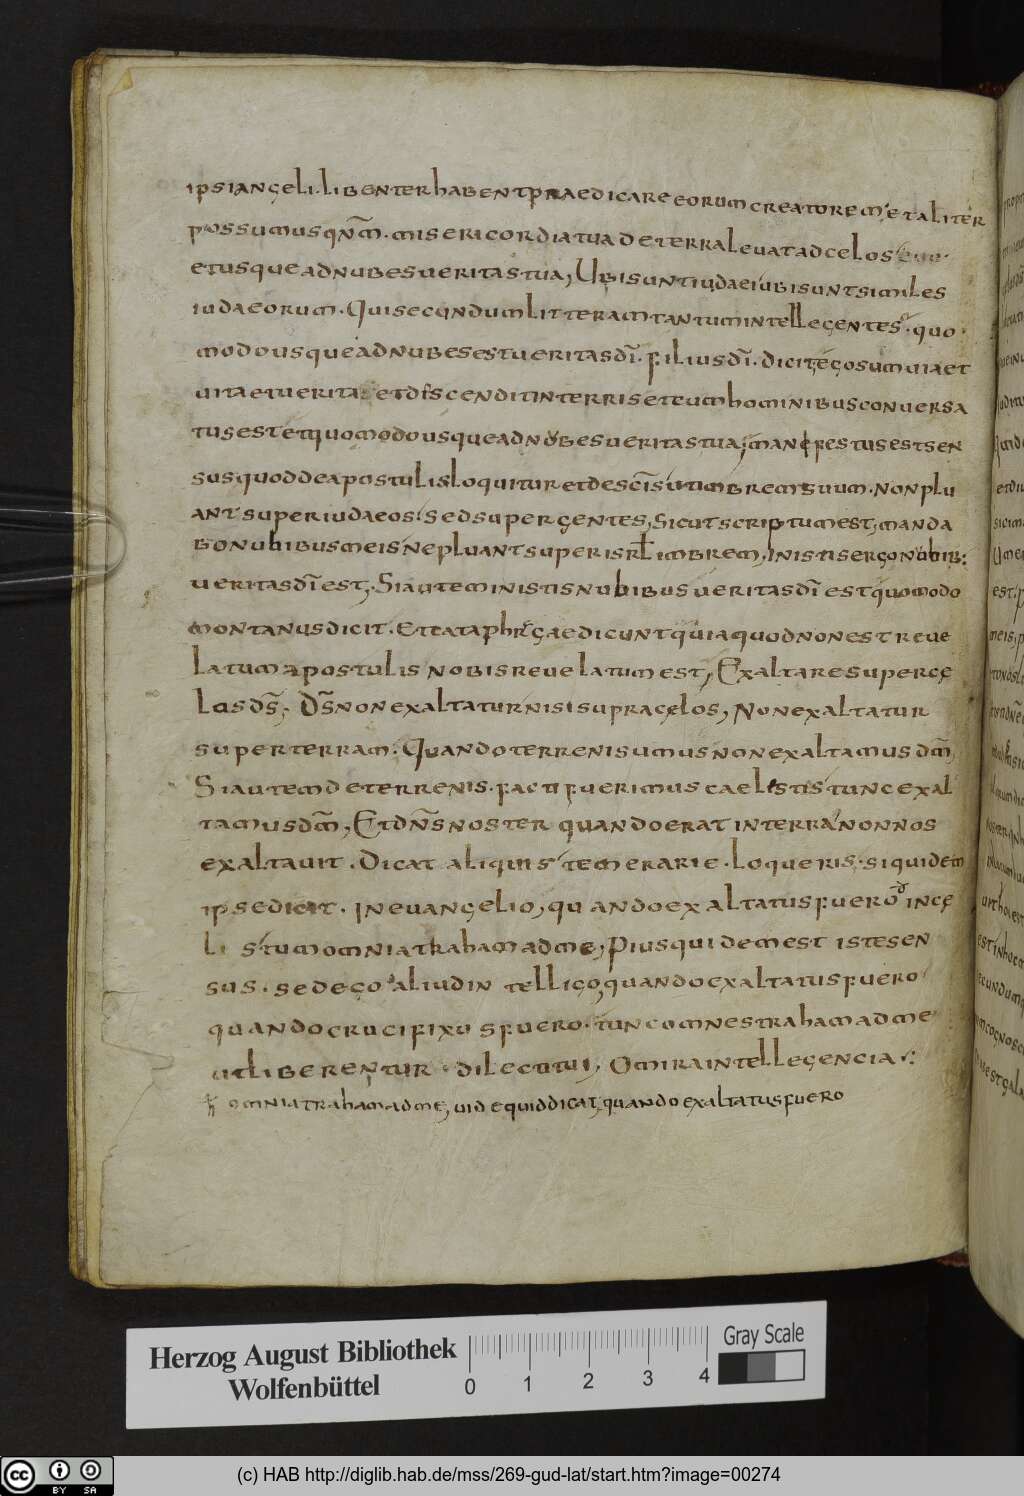 ipsi angeli. libenter habent praedicare eorum creatorem, et aliter
possumus qnm̄. misericordia tua de terra levat ad celos
et usque ad nubes ueritas tua, Ubi sunt iudaei ubi sunt similes
iudaeorum. Qui secundum litteram tantum intellegentes. quo
modo usque ad nubes est ueritas dī. filius dī. dicit, ego sum uia et
uita et uerita et discendit in terris et cum hominibus conuersa
tus est et quomodo usque ad nubes ueritas tua, manefestus est sen
sus quod de apostulis loquitur et de scīs imbrem suum. non plu
ant super iudaeos. sed super gentes, sicut scriptum est, manda
bo nubibus meis ne pluant super isrł imbrem, In istis ergo nubib:
ueritas dī est, Si autem in istis nubibus ueritas dī est quomodo
montanus dicit. et quia quod non est reue
latum apostulis nobis reuelatum est, Exaltare super cę
los ds̄, Ds̄ non exaltatur nisi supra cęlos, Non exaltatur
super terram. Quando terreni sumus non exaltamus dm̄,
Si autem de terrenis. facti fuerimus caelestis tunc exal
tamus dm̄, Et dn̄s noster quando erat in terra non nos
exaltauit. Dicat aliquis temerarie. loqueris. siquidem
ipse dicit. in euangelio, quando exaltatus fuero in cę
li s tum omnia traham ad me, Pius quidem est iste sen
sus. sed ego aliud intellego, quando exaltatus fuero
quando crucifixus fuero. tunc omnes traham ad me
ut liberentur dilecti tui, O mira intellegencia
omnia traham ad me, uide quid dicat, quando exaltatus fuero
Herzog August Bibliothek
Wolfenbüttel
0 1 2 3 4
Gray Scale
cc BY SA
(c) HAB http://diglib.hab.de/mss/269-gud-lat/start.htm?image=00274